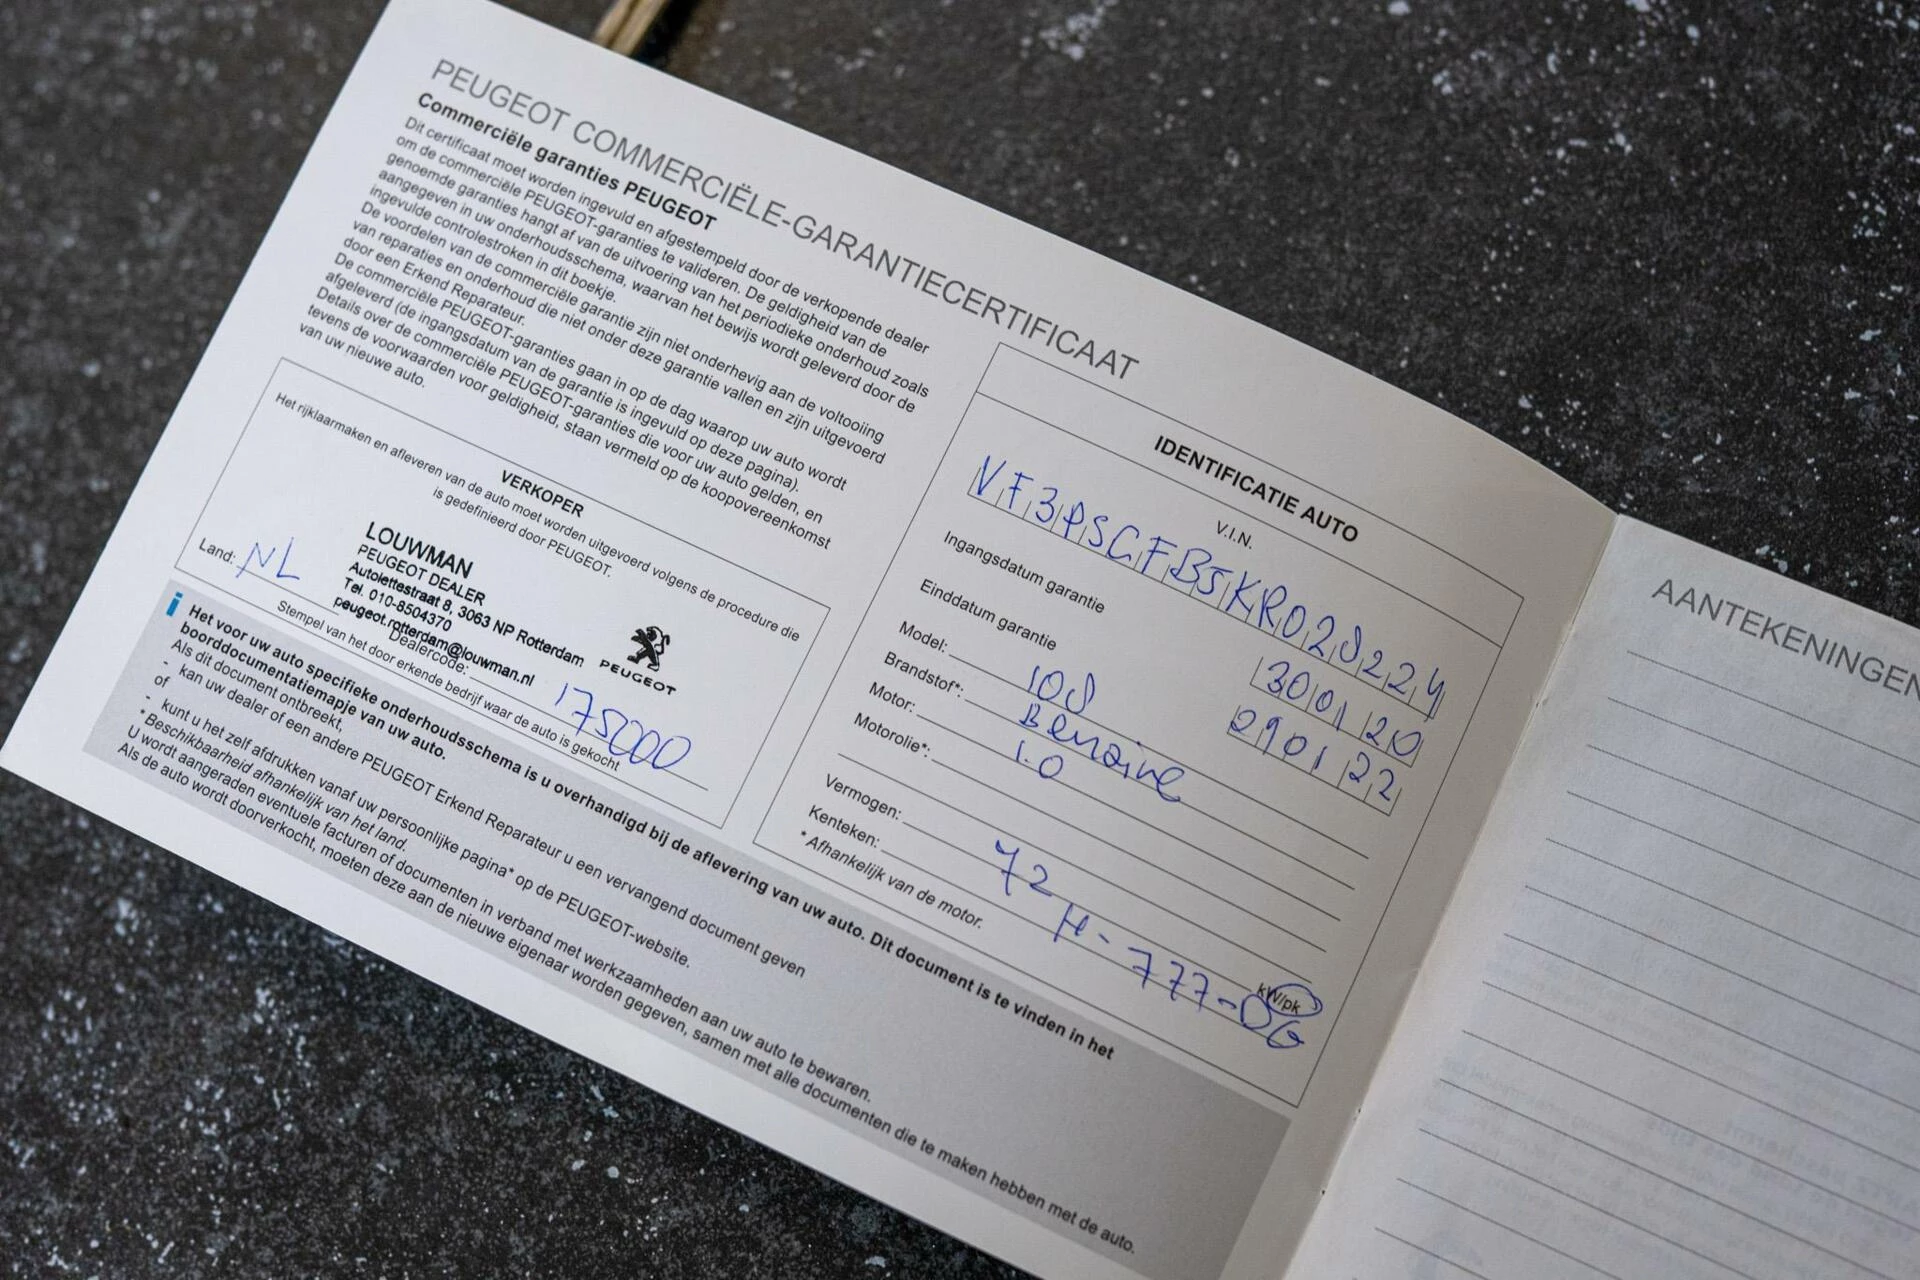 PEUGEOT COMMERCIËLE-GARANTIECERTIFICAAT
Commerciële garanties PEUGEOT
Dit certificaat moet worden ingevuld en afgestempeld door de verkopende dealer
om de commerciële PEUGEOT-garanties te valideren. De geldigheid van de
genoemde garanties hangt af van de uitvoering van het periodieke onderhoud zoals
aangegeven in uw onderhoudsschema, waarvan het bewijs wordt geleverd door de
ingevulde controlestroken in dit boekje.
De voordelen van de commerciële garantie zijn niet onderhevig aan de voltooiing
van reparaties en onderhoud die niet onder deze garantie vallen en zijn uitgevoerd
door een Erkend Reparateur.
De commerciële PEUGEOT-garanties gaan in op de dag waarop uw auto wordt
afgeleverd (de ingangsdatum van de garantie is ingevuld op deze pagina).
Details over de commerciële PEUGEOT-garanties die voor uw auto gelden, en
tevens de voorwaarden voor geldigheid, staan vermeld op de koopovereenkomst
van uw nieuwe auto.
VERKOPER
Het rijklaarmaken en afleveren van de auto moet worden uitgevoerd volgens de procedure die
is gedefinieerd door PEUGEOT.
LOUWMAN
PEUGEOT DEALER
Autolettestraat 8, 3063 NP Rotterdam
Tel. 010-8504370
peugeot.rotterdam@louwman.nl
PEUGEOT
Land: NL
Dealercode: 175000
Stempel van het door erkende bedrijf waar de auto is gekocht
IDENTIFICATIE AUTO
V.I.N.
VF3PSCFB5KR028224
Ingangsdatum garantie 30 01 20
Einddatum garantie 29 01 22
Model: 108
Brandstof*: Benzine
Motor: 1.0
Motorolie*:
Vermogen: 72 kW/pk
Kenteken: H-777-DG
*Afhankelijk van de motor.
i Het voor uw auto specifieke onderhoudsschema is u overhandigd bij de aflevering van uw auto. Dit document is te vinden in het
boorddocumentatiemapje van uw auto.
Als dit document ontbreekt,
- kan uw dealer of een andere PEUGEOT Erkend Reparateur u een vervangend document geven
of
- kunt u het zelf afdrukken vanaf uw persoonlijke pagina* op de PEUGEOT-website.
*Beschikbaarheid afhankelijk van het land.
U wordt aangeraden eventuele facturen of documenten in verband met werkzaamheden aan uw auto te bewaren.
Als de auto wordt doorverkocht, moeten deze aan de nieuwe eigenaar worden gegeven, samen met alle documenten die te maken hebben met de auto.
AANTEKENINGEN